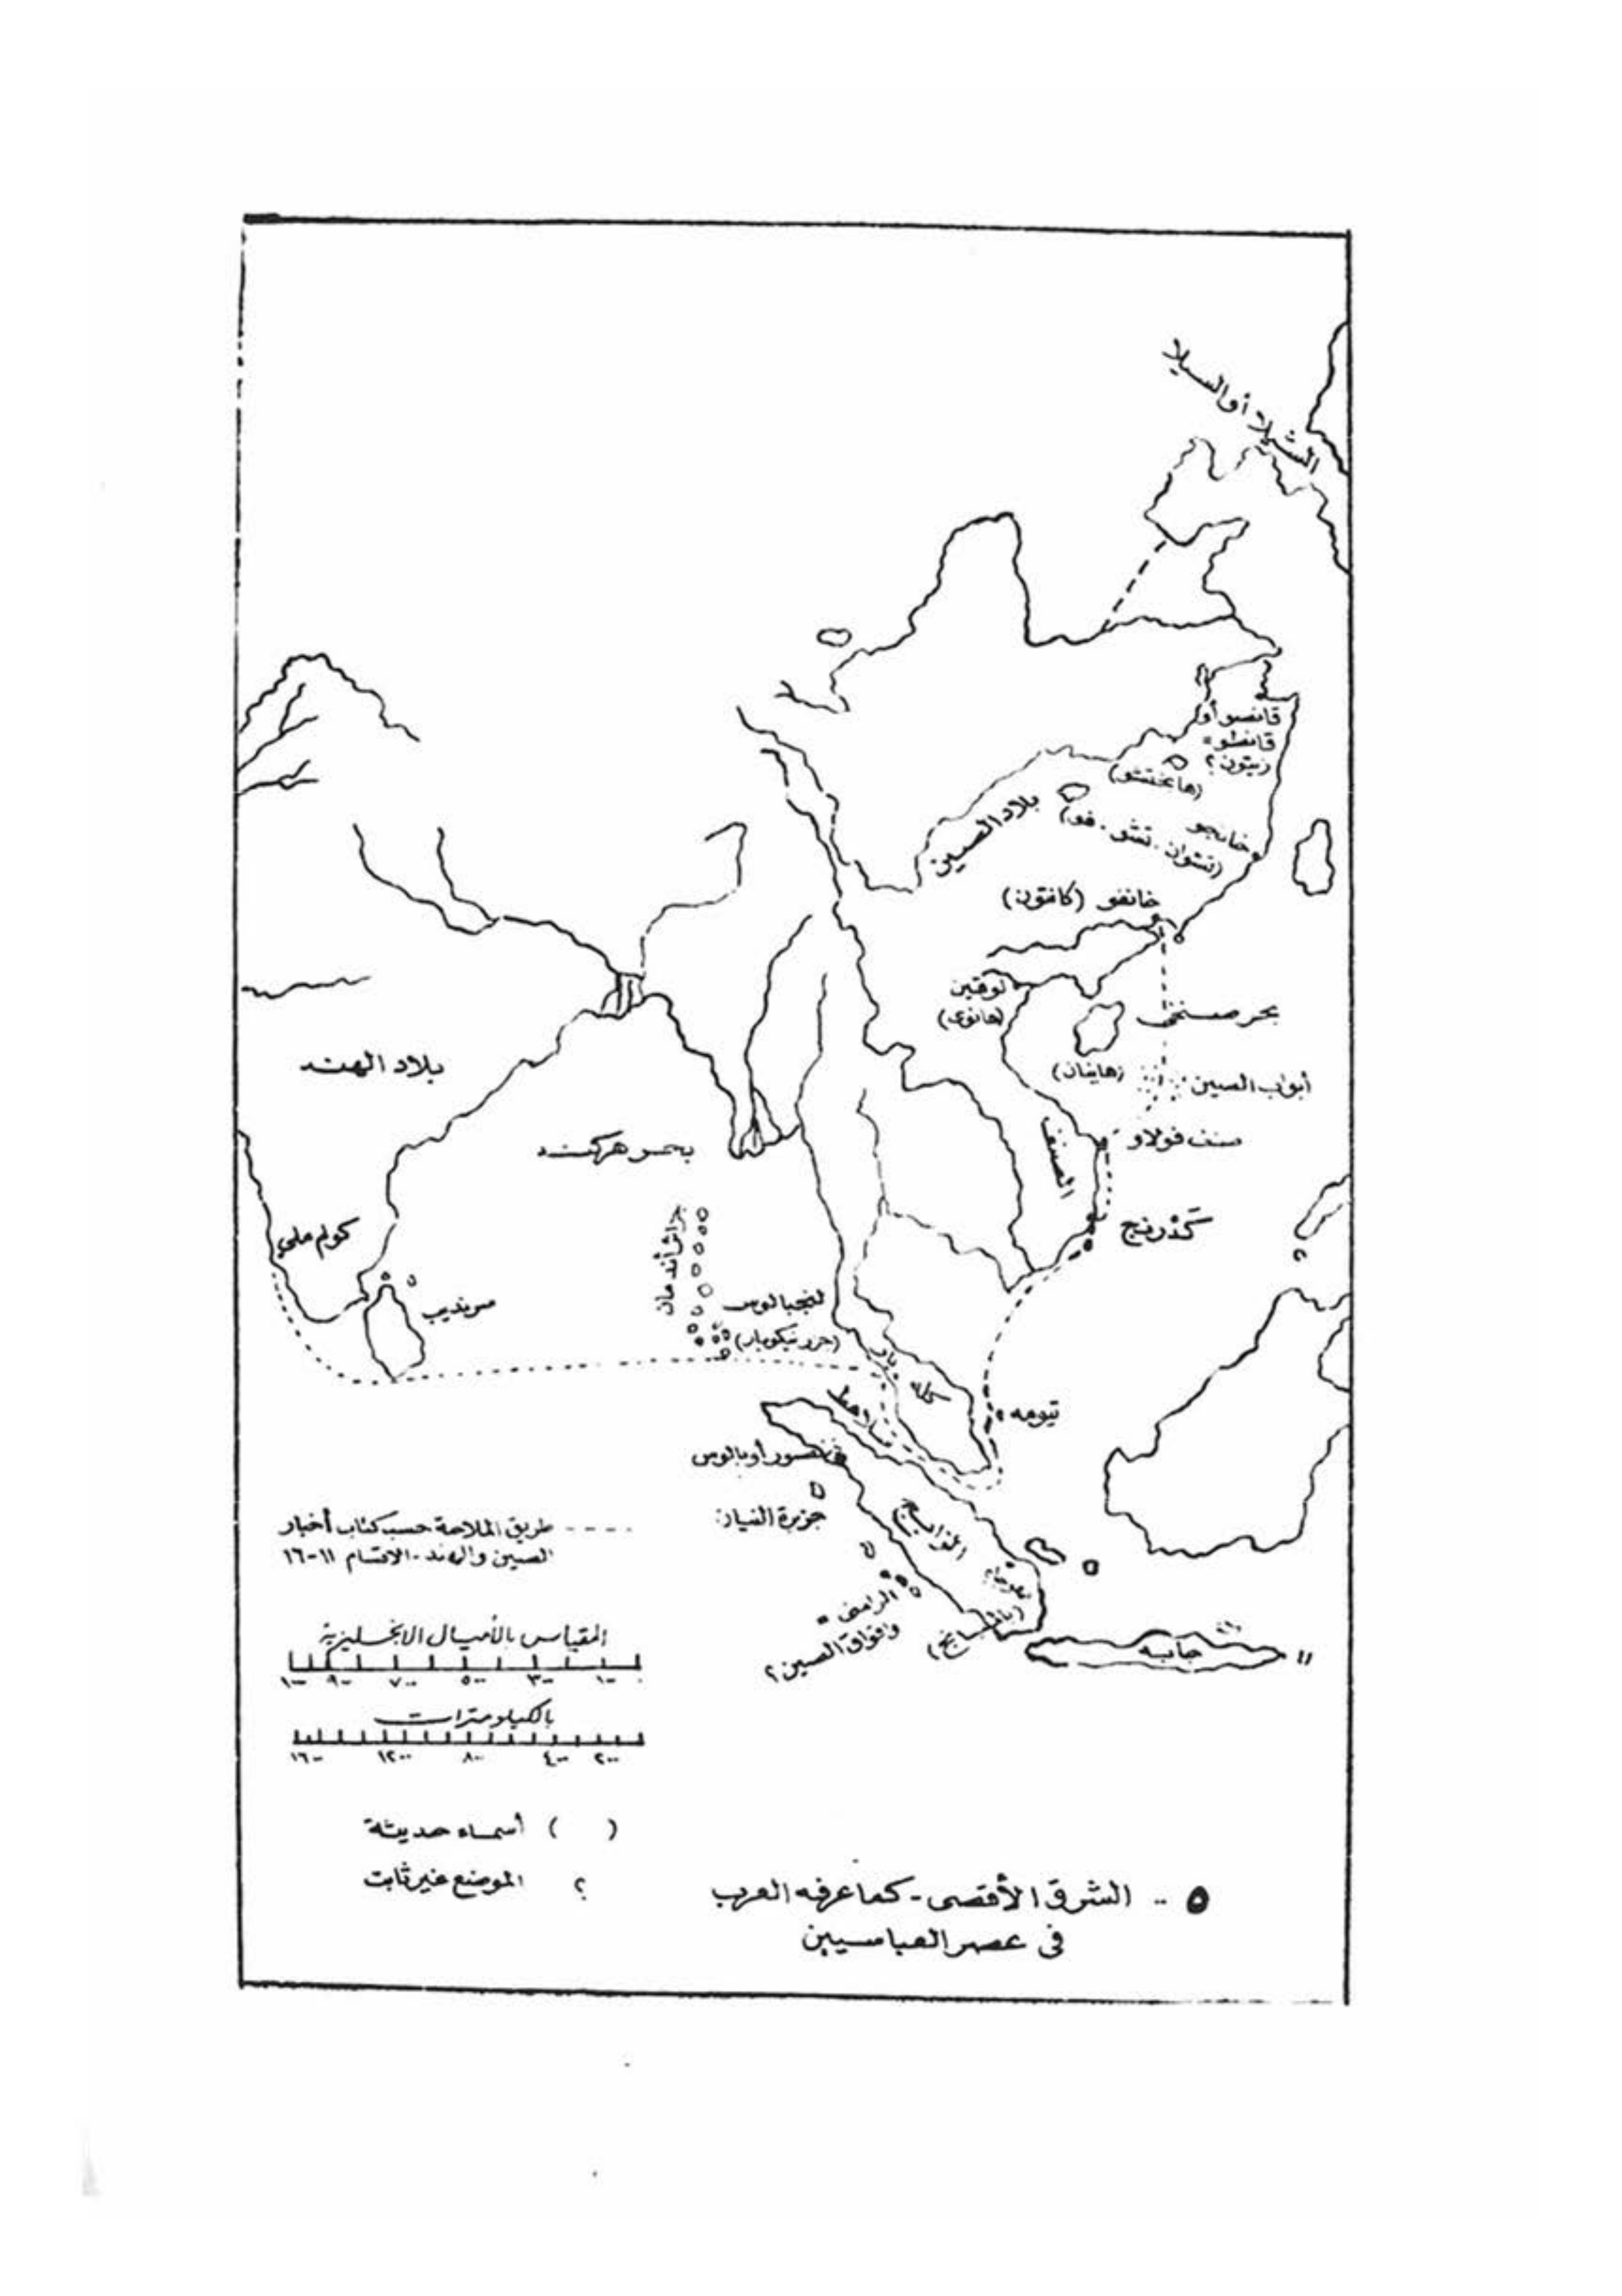 الشيلا أو السيلا
قانصو أو
قانطو =
زيتون ؟
(هانختشو)
بلاد الصين
خانجو
(تشوان . تشو . فو)
خانفو (كانتون)
لوقين
(هانوى)
بحر صنخى
(هاينان)
أبواب الصين
صنف فولاو
الصنف
كَدْرنج
بلاد الهند
بحر هركند
كولم ملي
سرنديب
جزائر أندمان
لنجبالوس
(جزر نيكوبار)
كله
تيومه
فنصور أو بالوس
جزيرة النيان
الزابج
الرامنى =
واقواق الصين ؟
جابه
---- طريق الملاحة حسب كتاب أخبار
الصين والهند - الاقسام ١١-١٦
المقياس بالأميال الانجليزية
١٠٠٠ ٩٠٠ ٧٠٠ ٥٠٠ ٣٠٠ ١٠٠ ٠
بالكيلومترات
١٦٠٠ ١٢٠٠ ٨٠٠ ٤٠٠ ٢٠٠
( ) أسماء حديثة
؟ الموضع غير ثابت
٥ - الشرق الأقصى - كما عرفه العرب
فى عصر العباسيين